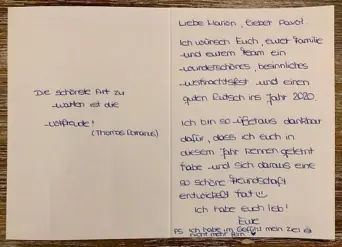 Die schönste Art zu
warten ist die
Vorfreude!
(Thomas Romanus)
Liebe Marion, lieber Pavol.
Ich wünsch Euch, eurer Familie
und eurem Team ein
wunderschönes, besinnliches
Weihnachtsfest und einen
guten Rutsch ins Jahr 2020.
Ich bin so überaus dankbar
dafür, dass ich euch in
diesem Jahr kennen gelernt
habe und sich daraus eine
so schöne Freundschaft
entwickelt hat
Ich habe euch lieb!
Eure
PS ich habe im Gefühl mein Ziel ist
nicht mehr fern